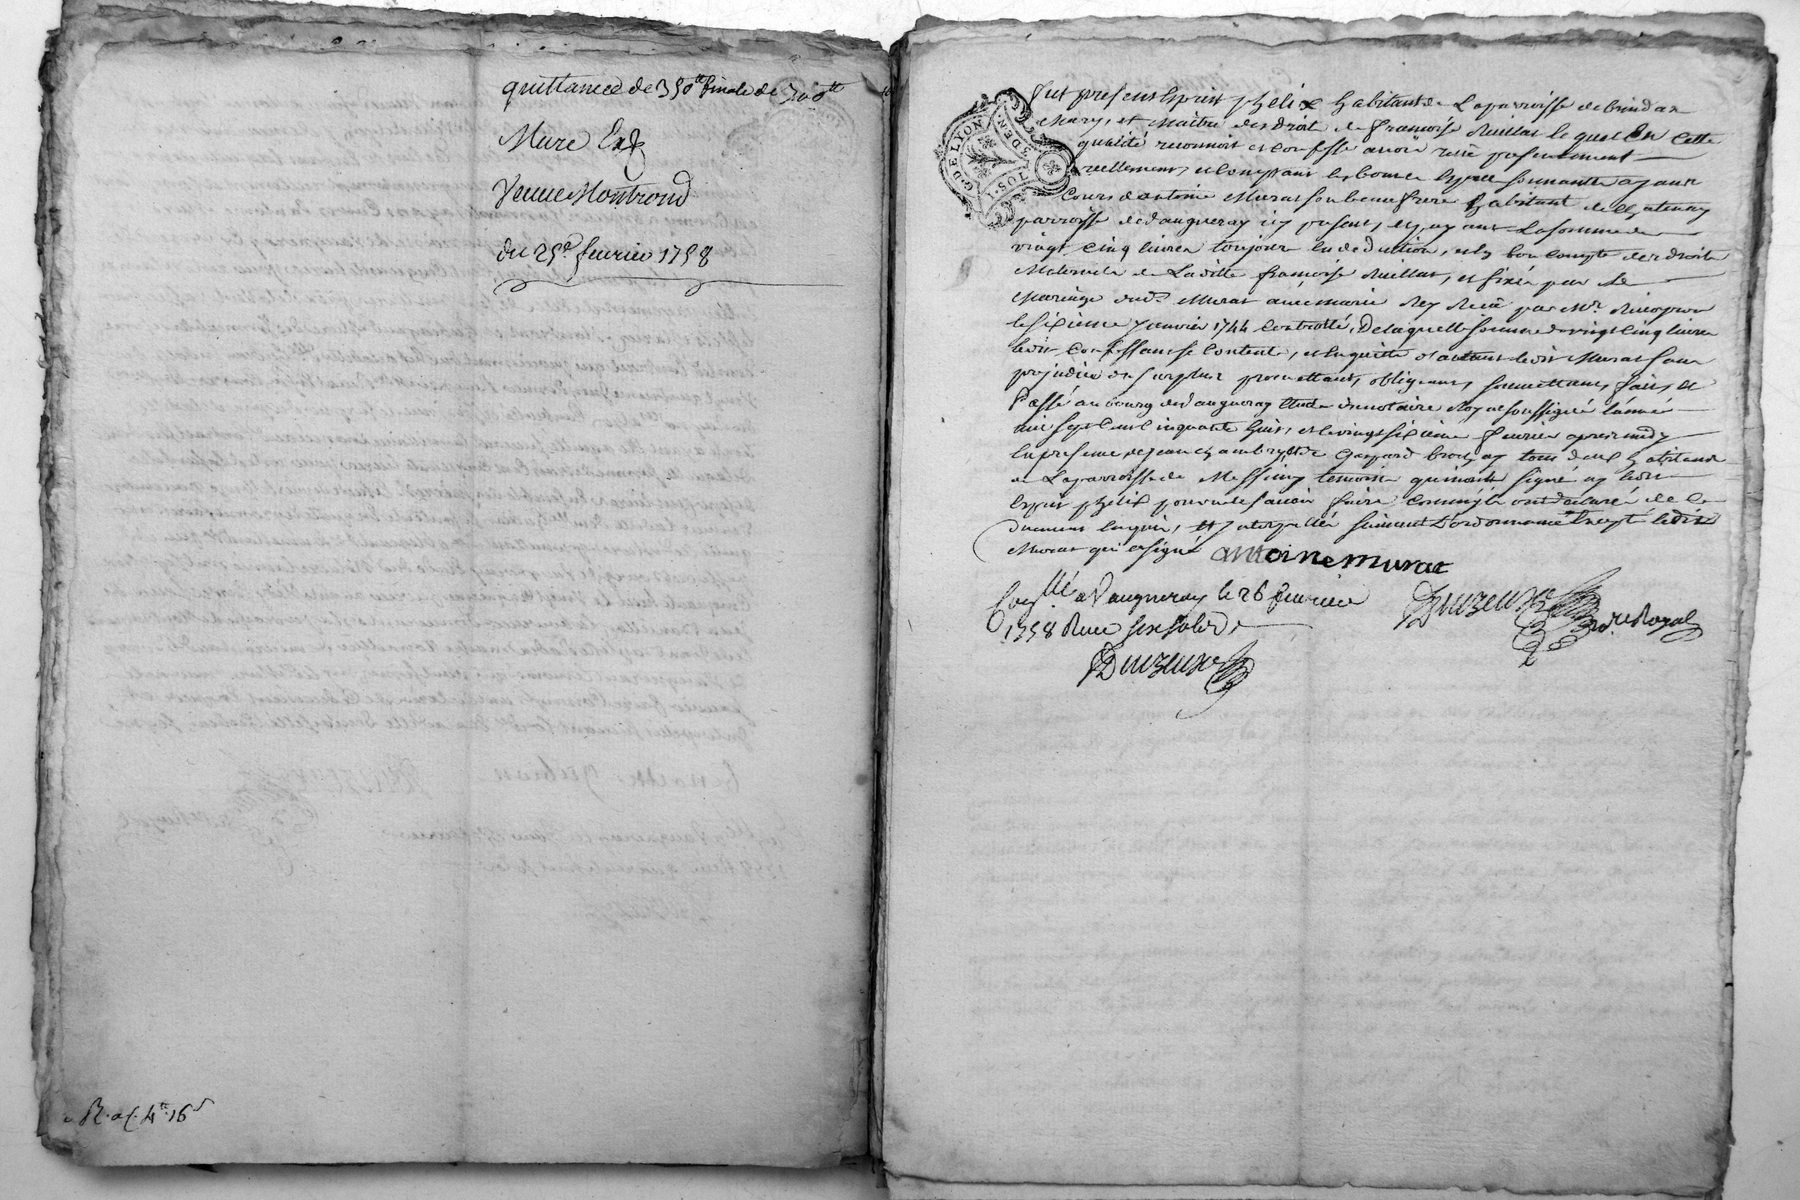 quittance de 350ᵗᵗ finale de 300ᵗᵗ
Mure
Veuve Montrond
du 25ᵉ fevrier 1758
R. a C. 4ᵗᵗ 16ˢ
G. DE LYON
3 DEN.
Fut present Esprit phelix habitant de La parroisse de brindas
Mary, et Maitre des droit de françoise Ruillat le quel En Cette
qualité reconnoit et Confesse avoir reçu presentement
reellement, et Comptant En bonnes Espece sonnante ayant
Cours d'antoine Murat son beaufrere habitant de
parroisse de Vaugneray icy present, et payant La somme de
vingt Cinq livres toujours En deduction, et a bon Compte des droits
Maternels de La ditte françoise Ruillat, et fixés par Le
Mariage dud. Murat avec marie Rey Recu par Mᵉ
le sixieme Janvier 1744 Controllé, De laquelle somme de vingt Cinq livres
ledit Confessant se Contente, et En quitte d'autant ledit Murat sans
prejudice du surplus promettant, obligeant, soumettant, fait, et
Passé au bourg de Vaugneray Etude du notaire Royal soussigné l'année
mil sept Cent Cinquante huit, et le vingt sixieme fevrier apres midy
En presence de jean et Gaspard tous deux habitant
de La parroisse de Messimy temoins qui n'ont signé ny ledit
Esprit phelix pour ne sçavoir faire Comm'ils ont declaré de Ce
duement Enquis, et Interpellés suivant L'ordonnance Excepté ledit
Murat qui a signé antoine murat
Conˡˡᵉ a Vaugneray le 26 fevrier
1758 Reçu six sols
Duizeux
Duizeux
nore Royal